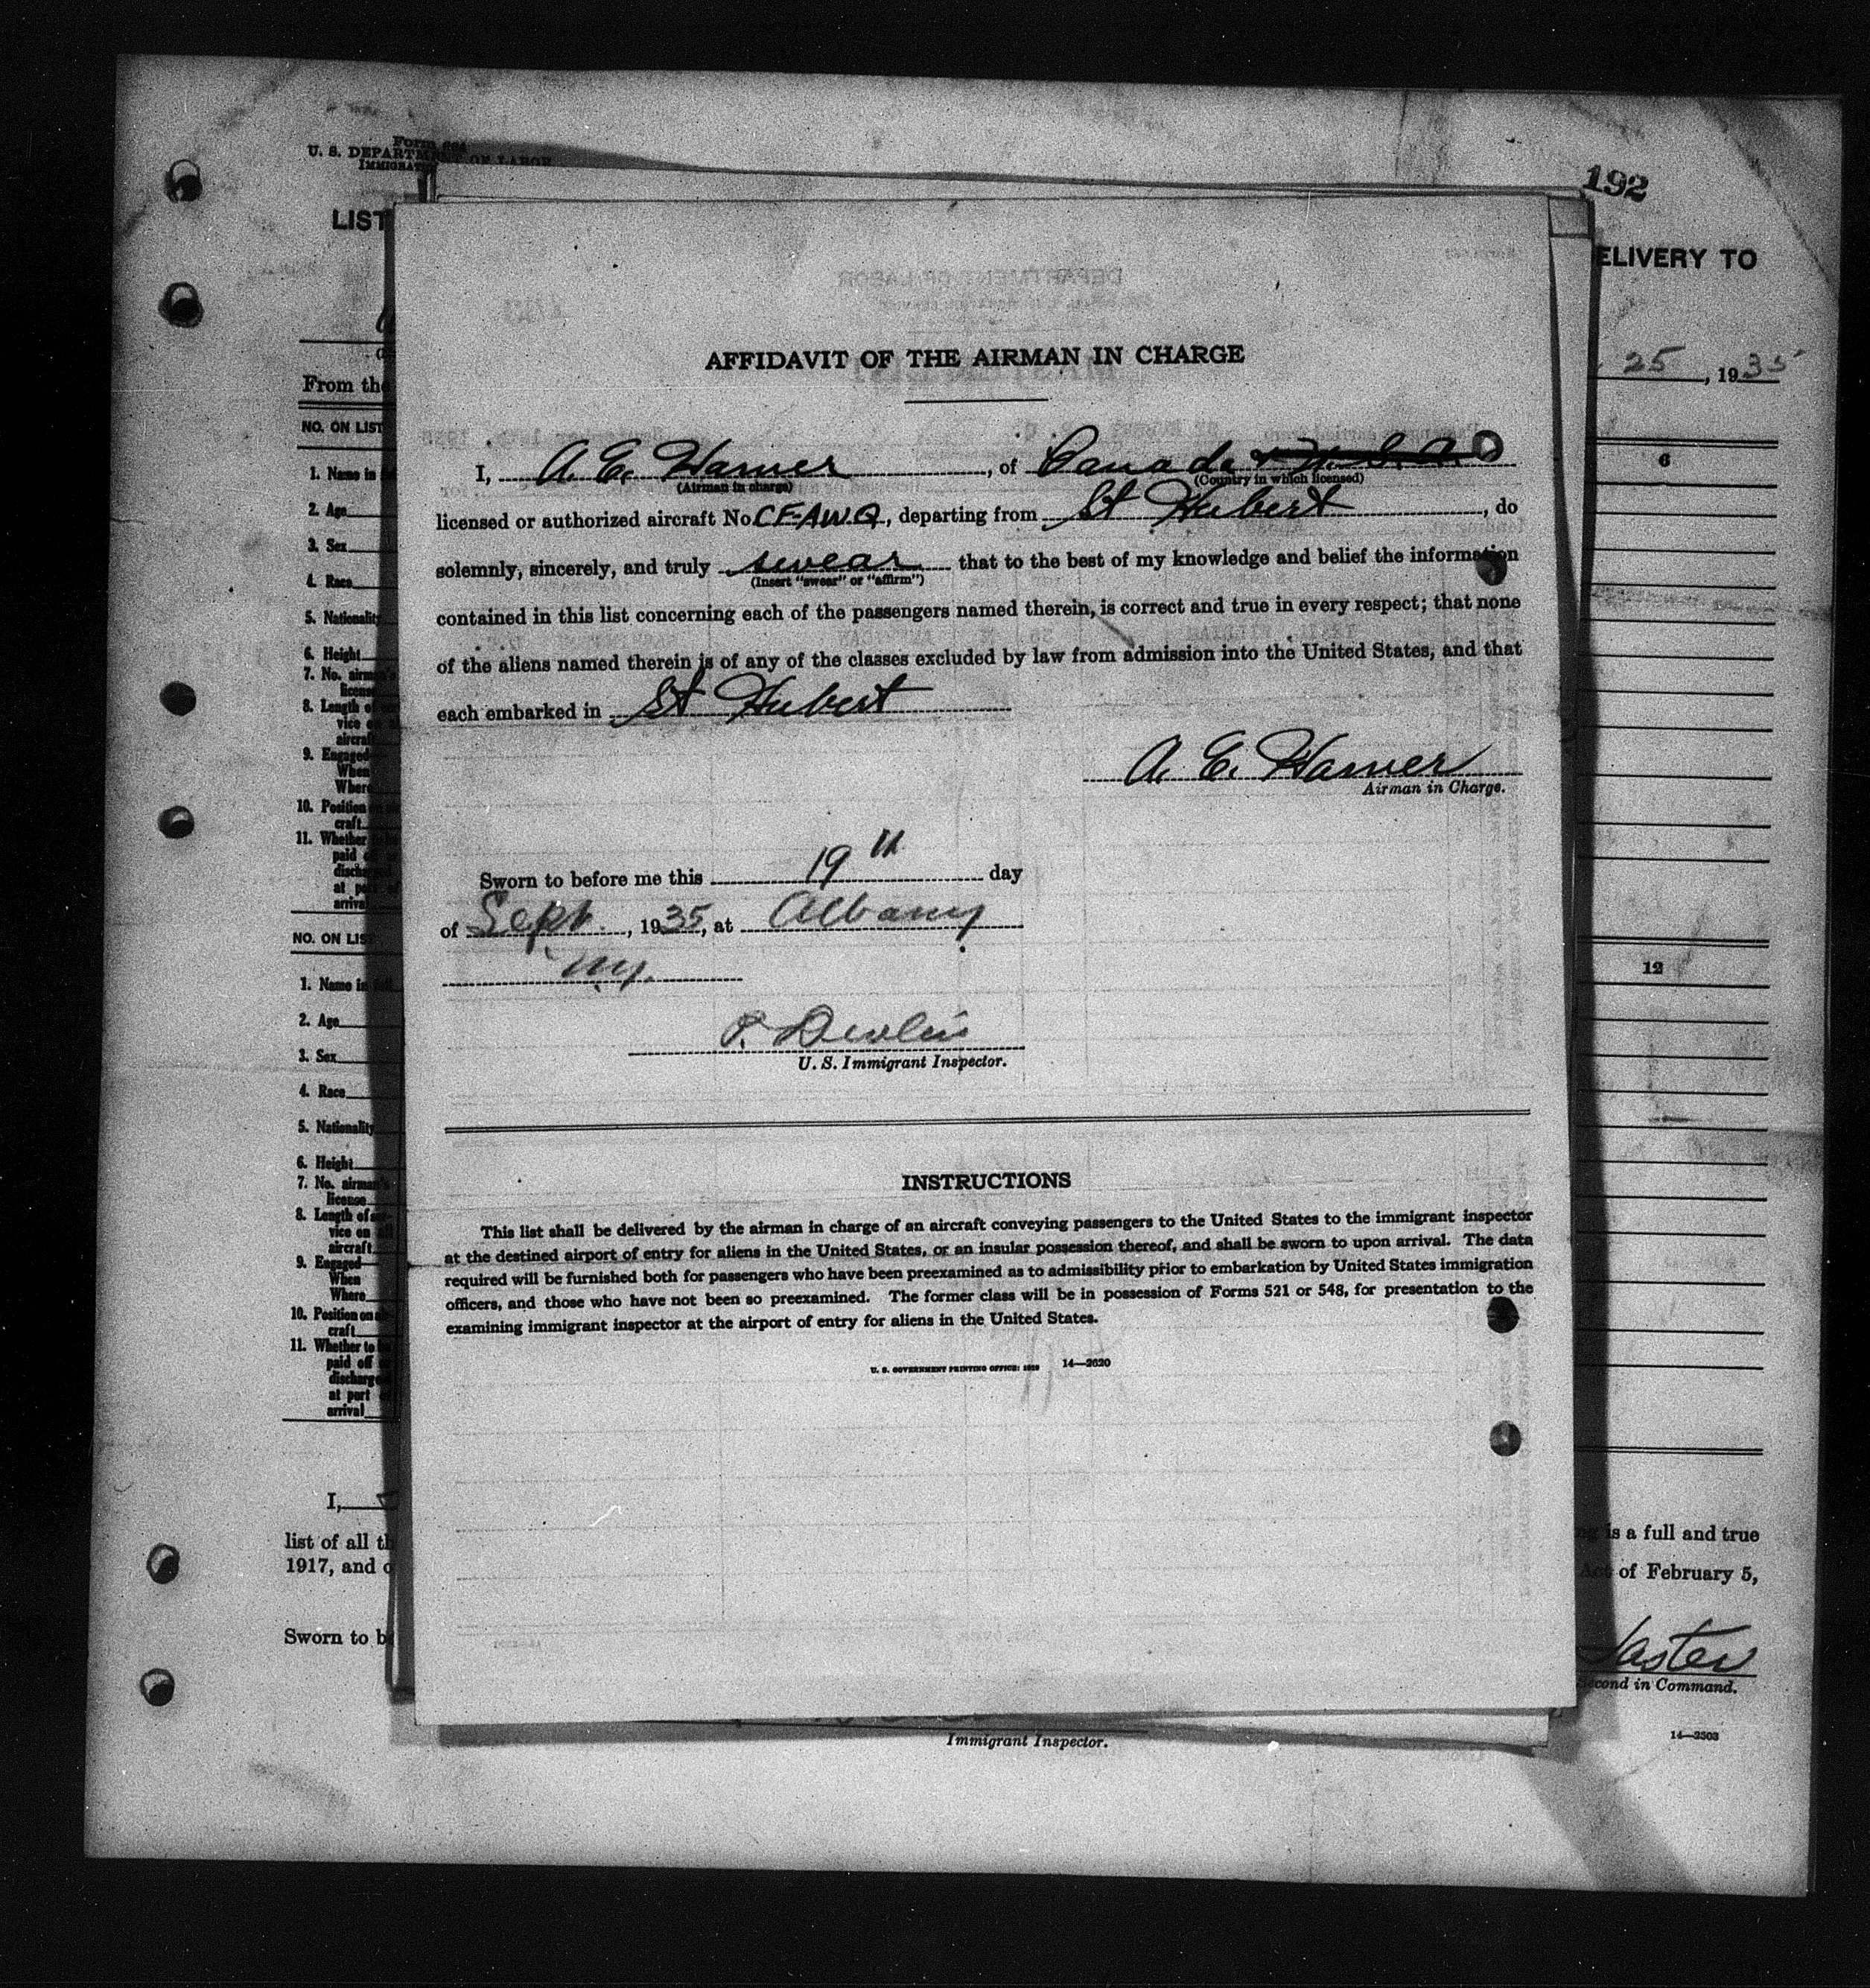 192
AFFIDAVIT OF THE AIRMAN IN CHARGE
I, A. E. Hanver, of Canada
(Airman in charge) (Country in which licensed)
licensed or authorized aircraft No CF-AWQ, departing from St Hubert, do
solemnly, sincerely, and truly swear that to the best of my knowledge and belief the information
(Insert "swear" or "affirm")
contained in this list concerning each of the passengers named therein, is correct and true in every respect; that none
of the aliens named therein is of any of the classes excluded by law from admission into the United States, and that
each embarked in St Hubert
A. E. Hanver
Airman in Charge.
Sworn to before me this 19th day
of Sept., 1935, at Albany
NY.
P. Devlin
U. S. Immigrant Inspector.
INSTRUCTIONS
This list shall be delivered by the airman in charge of an aircraft conveying passengers to the United States to the immigrant inspector
at the destined airport of entry for aliens in the United States, or an insular possession thereof, and shall be sworn to upon arrival. The data
required will be furnished both for passengers who have been preexamined as to admissibility prior to embarkation by United States immigration
officers, and those who have not been so preexamined. The former class will be in possession of Forms 521 or 548, for presentation to the
examining immigrant inspector at the airport of entry for aliens in the United States.
U. S. GOVERNMENT PRINTING OFFICE: 14—2620
Form
U. S. DEPARTMENT OF LABOR
LIST
ELIVERY TO
25, 1935
From the
NO. ON LIST
6
1. Name in
2. Age
3. Sex
4. Race
5. Nationality
6. Height
7. No. airman's
license
8. Length of
vice on
aircraft
9. Engaged
When
Where
10. Position
craft
11. Whether
paid
disch
at
arrival
NO. ON LIS
12
1. Name in
2. Age
3. Sex
4. Race
5. Nationality
6. Height
7. No. airman's
license
8. Length of ser-
vice on
aircraft
9. Engaged
When
Where
10. Position on
craft
11. Whether to
paid off
discharge
at port
arrival
I,
list of all th
is a full and true
1917, and
of February 5,
Sworn to b
aster
Second in Command.
Immigrant Inspector.
14—2503